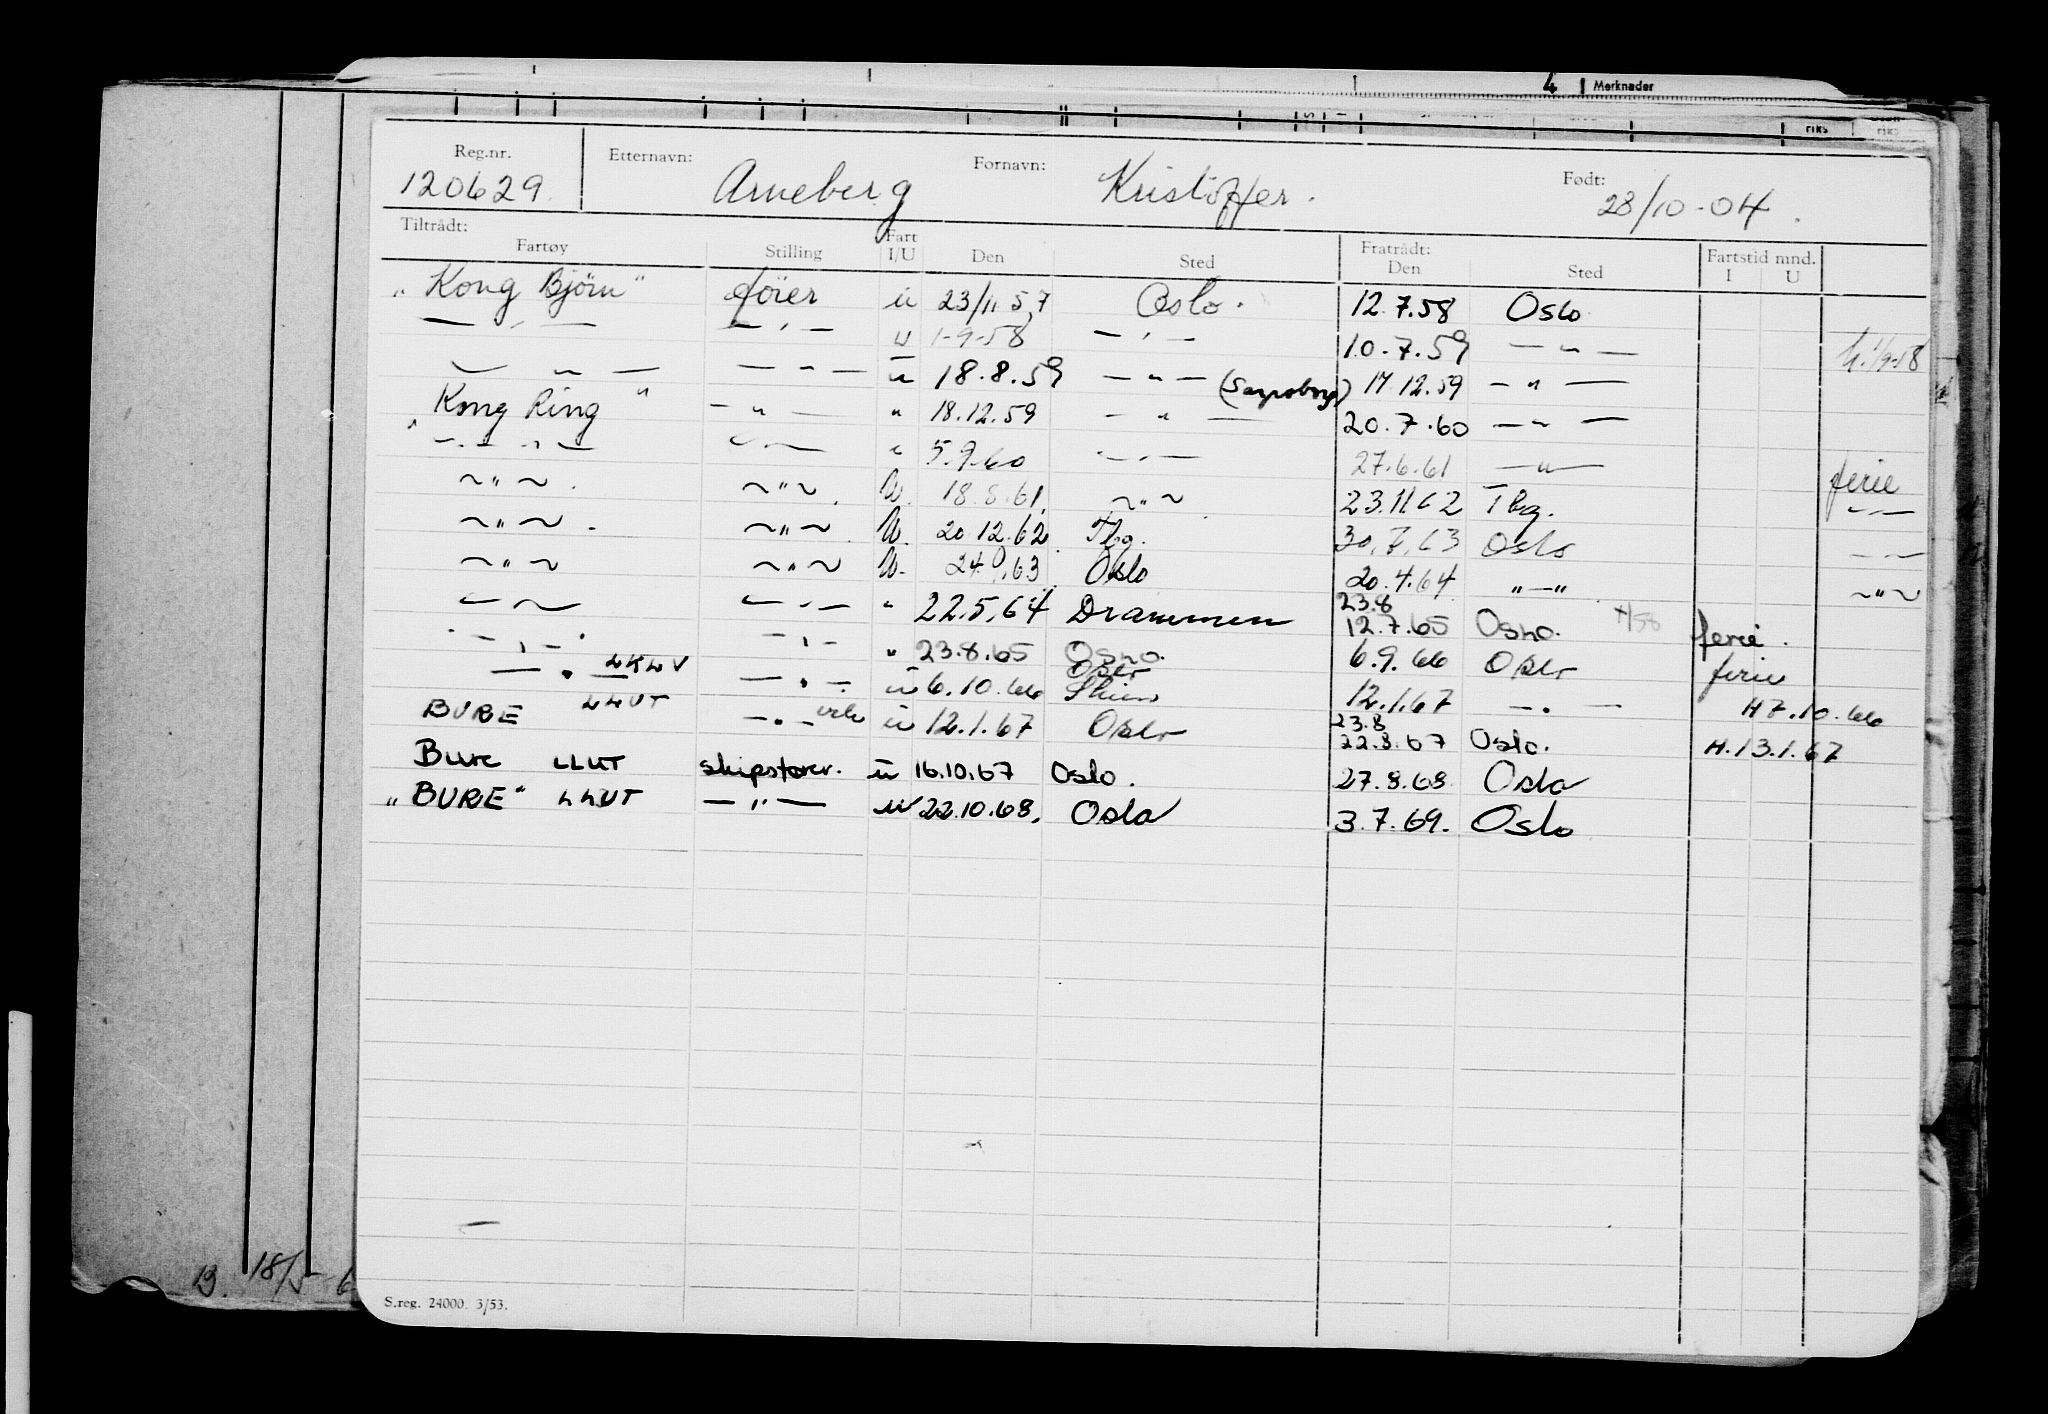 4 Merknader
riks riks
Reg.nr. Etternavn: Fornavn: Født:
120629. Arneberg Kristoffer. 28/10-04.
Tiltrådt: Fratrådt: Fartstid mnd.
Fartøy Stilling Fart I/U Den Sted Den Sted I U
"Kong Björn" förer u 23/11 57 Oslo. 12.7.58 Oslo
— " — — " — u 1-9-58 — " — 10.7.59 — " — h. 1/9-58
— " — — " — u 18.8.59 — " — (Sarpsborg) 17.12.59 — " —
"Kong Ring" — " — " 18.12.59 — " — 20.7.60 — " —
— " — — " — " 5.9.60 — " — 27.6.61 — " — ferie
— " — . — " — . U. 18.8.61. — " — 23.11.62 Tbg. — " —
— " — . — " — . U. 20.12.62 Tbg. 30.7.63 Oslo — " —
— " — — " — U. 24. .63 Oslo 20.4.64 " — " — " —
— " — — " — " 22.5.64 Drammen 23.8 12.7.65 Oslo. ferie.
— " — — " — " 23.8.65 Oslo. 6.9.66 Oslo ferie
— " — LKLV — " — u 6.10.66 Oslo Skien 12.1.67 — " — H 7.10.66
BURE LLUT — " — u 12.1.67 Oslo 23.8 22.8.67 Oslo. H.13.1.67
Bure LLUT skipsfører. u 16.10.67 Oslo. 27.8.68 Oslo
"BURE" LLUT — " — u 22.10.68. Oslo 3.7.69. Oslo
B. 18/5 6
S.reg. 24000. 3/53.